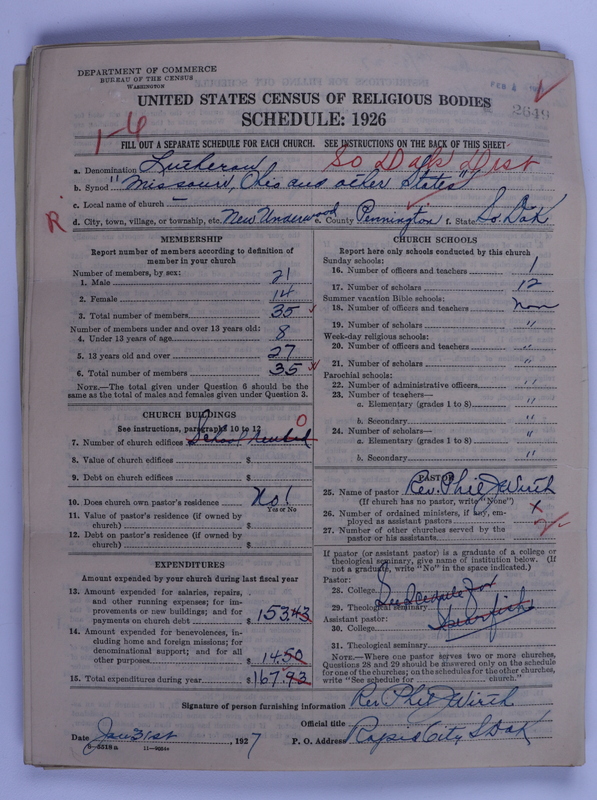 DEPARTMENT OF COMMERCE
BUREAU OF THE CENSUS
WASHINGTON
FEB 4
2649
UNITED STATES CENSUS OF RELIGIOUS BODIES
SCHEDULE: 1926
1-6
FILL OUT A SEPARATE SCHEDULE FOR EACH CHURCH. SEE INSTRUCTIONS ON THE BACK OF THIS SHEET
So Dak Dist
a. Denomination Lutheran
b. Synod "Missouri, Ohio and other States"
c. Local name of church —
R
d. City, town, village, or township, etc. New Underwood e. County Pennington f. State So. Dak
MEMBERSHIP
Report number of members according to definition of member in your church
Number of members, by sex:
1. Male 21
2. Female 14
3. Total number of members 35
Number of members under and over 13 years old:
4. Under 13 years of age 8
5. 13 years old and over 27
6. Total number of members 35
NOTE.—The total given under Question 6 should be the
same as the total of males and females given under Question 3.
CHURCH BUILDINGS
See instructions, paragraphs 10 to 12
7. Number of church edifices School Rented 0
8. Value of church edifices $
9. Debt on church edifices $
10. Does church own pastor's residence No!
Yes or No
11. Value of pastor's residence (if owned by
church) $
12. Debt on pastor's residence (if owned by
church) $
EXPENDITURES
Amount expended by your church during last fiscal year
13. Amount expended for salaries, repairs,
and other running expenses; for im-
provements or new buildings; and for
payments on church debt $ 153.43
14. Amount expended for benevolences, in-
cluding home and foreign missions; for
denominational support; and for all
other purposes 14.50
15. Total expenditures during year $ 167.93
CHURCH SCHOOLS
Report here only schools conducted by this church
Sunday schools:
16. Number of officers and teachers 1
17. Number of scholars 12
Summer vacation Bible schools:
18. Number of officers and teachers Non
19. Number of scholars "
Week-day religious schools:
20. Number of officers and teachers "
21. Number of scholars "
Parochial schools:
22. Number of administrative officers "
23. Number of teachers—
a. Elementary (grades 1 to 8) "
b. Secondary "
24. Number of scholars—
a. Elementary (grades 1 to 8) "
b. Secondary "
PASTOR
25. Name of pastor Rev. Phil J Wirth
(If church has no pastor, write "None")
26. Number of ordained ministers, if any, em-
ployed as assistant pastors x
27. Number of other churches served by the
pastor or his assistants
If pastor (or assistant pastor) is a graduate of a college or
theological seminary, give name of institution below. (If
not a graduate, write "No" in the space indicated.)
Pastor:
28. College See Scedule for
29. Theological seminary Spearfish
Assistant pastor:
30. College
31. Theological seminary
NOTE.—Where one pastor serves two or more churches,
Questions 28 and 29 should be answered only on the schedule
for one of the churches; on the schedules for the other churches,
write "See schedule for church."
Signature of person furnishing information Rev. Phil J Wirth
Official title
Date Jan 31st, 1927 P. O. Address Rapid City S Dak
8-5518a 11-9034